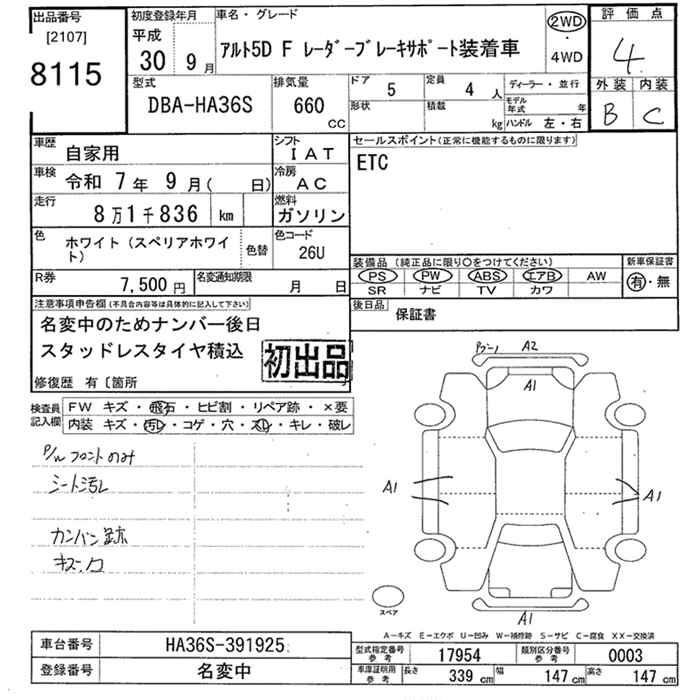 出品番号
[2107]
8115
初度登録年月
平成
30 9月
車名・グレード
アルト5D F レーダーブレーキサポート装着車
2WD
・
4WD
評価点
4
外装 内装
B C
型式
DBA-HA36S
排気量
660
CC
ドア 5
定員 4 人
形状
積載 kg
ディーラー・並行
モデル年式 年
ハンドル 左・右
車歴 自家用
シフト IAT
車検 令和 7年 9月( 日)
冷房 AC
走行 8万1千836 km
燃料 ガソリン
色 ホワイト(スペリアホワイト)
色替
色コード 26U
R券 7,500円
名変通知期限 月 日
セールスポイント(正常に機能するものに限ります)
ETC
装備品(純正品に限り○をつけてください)
PS PW ABS エアB AW
SR ナビ TV カワ
新車保証書
有・無
後日品 保証書
注意事項申告欄(不具合内容等は具体的に記入して下さい)
名変中のためナンバー後日
スタッドレスタイヤ積込
初出品
修復歴 有〔箇所 〕
検査員記入欄
FW キズ・飛石・ヒビ割・リペア跡・×要
内装 キズ・汚レ・コゲ・穴・スレ・キレ・破レ
P/W フロントのみ
シート汚レ
カンバン跡
A2
A1
A1
A1
A1
スペア
A−キズ E−エクボ U−凹み W−補修跡 S−サビ C−腐食 XX−交換済
車台番号 HA36S-391925
登録番号 名変中
型式指定番号 参考 17954
類別区分番号 参考 0003
車庫証明用 参考 長さ 339 cm 幅 147 cm 高さ 147 cm